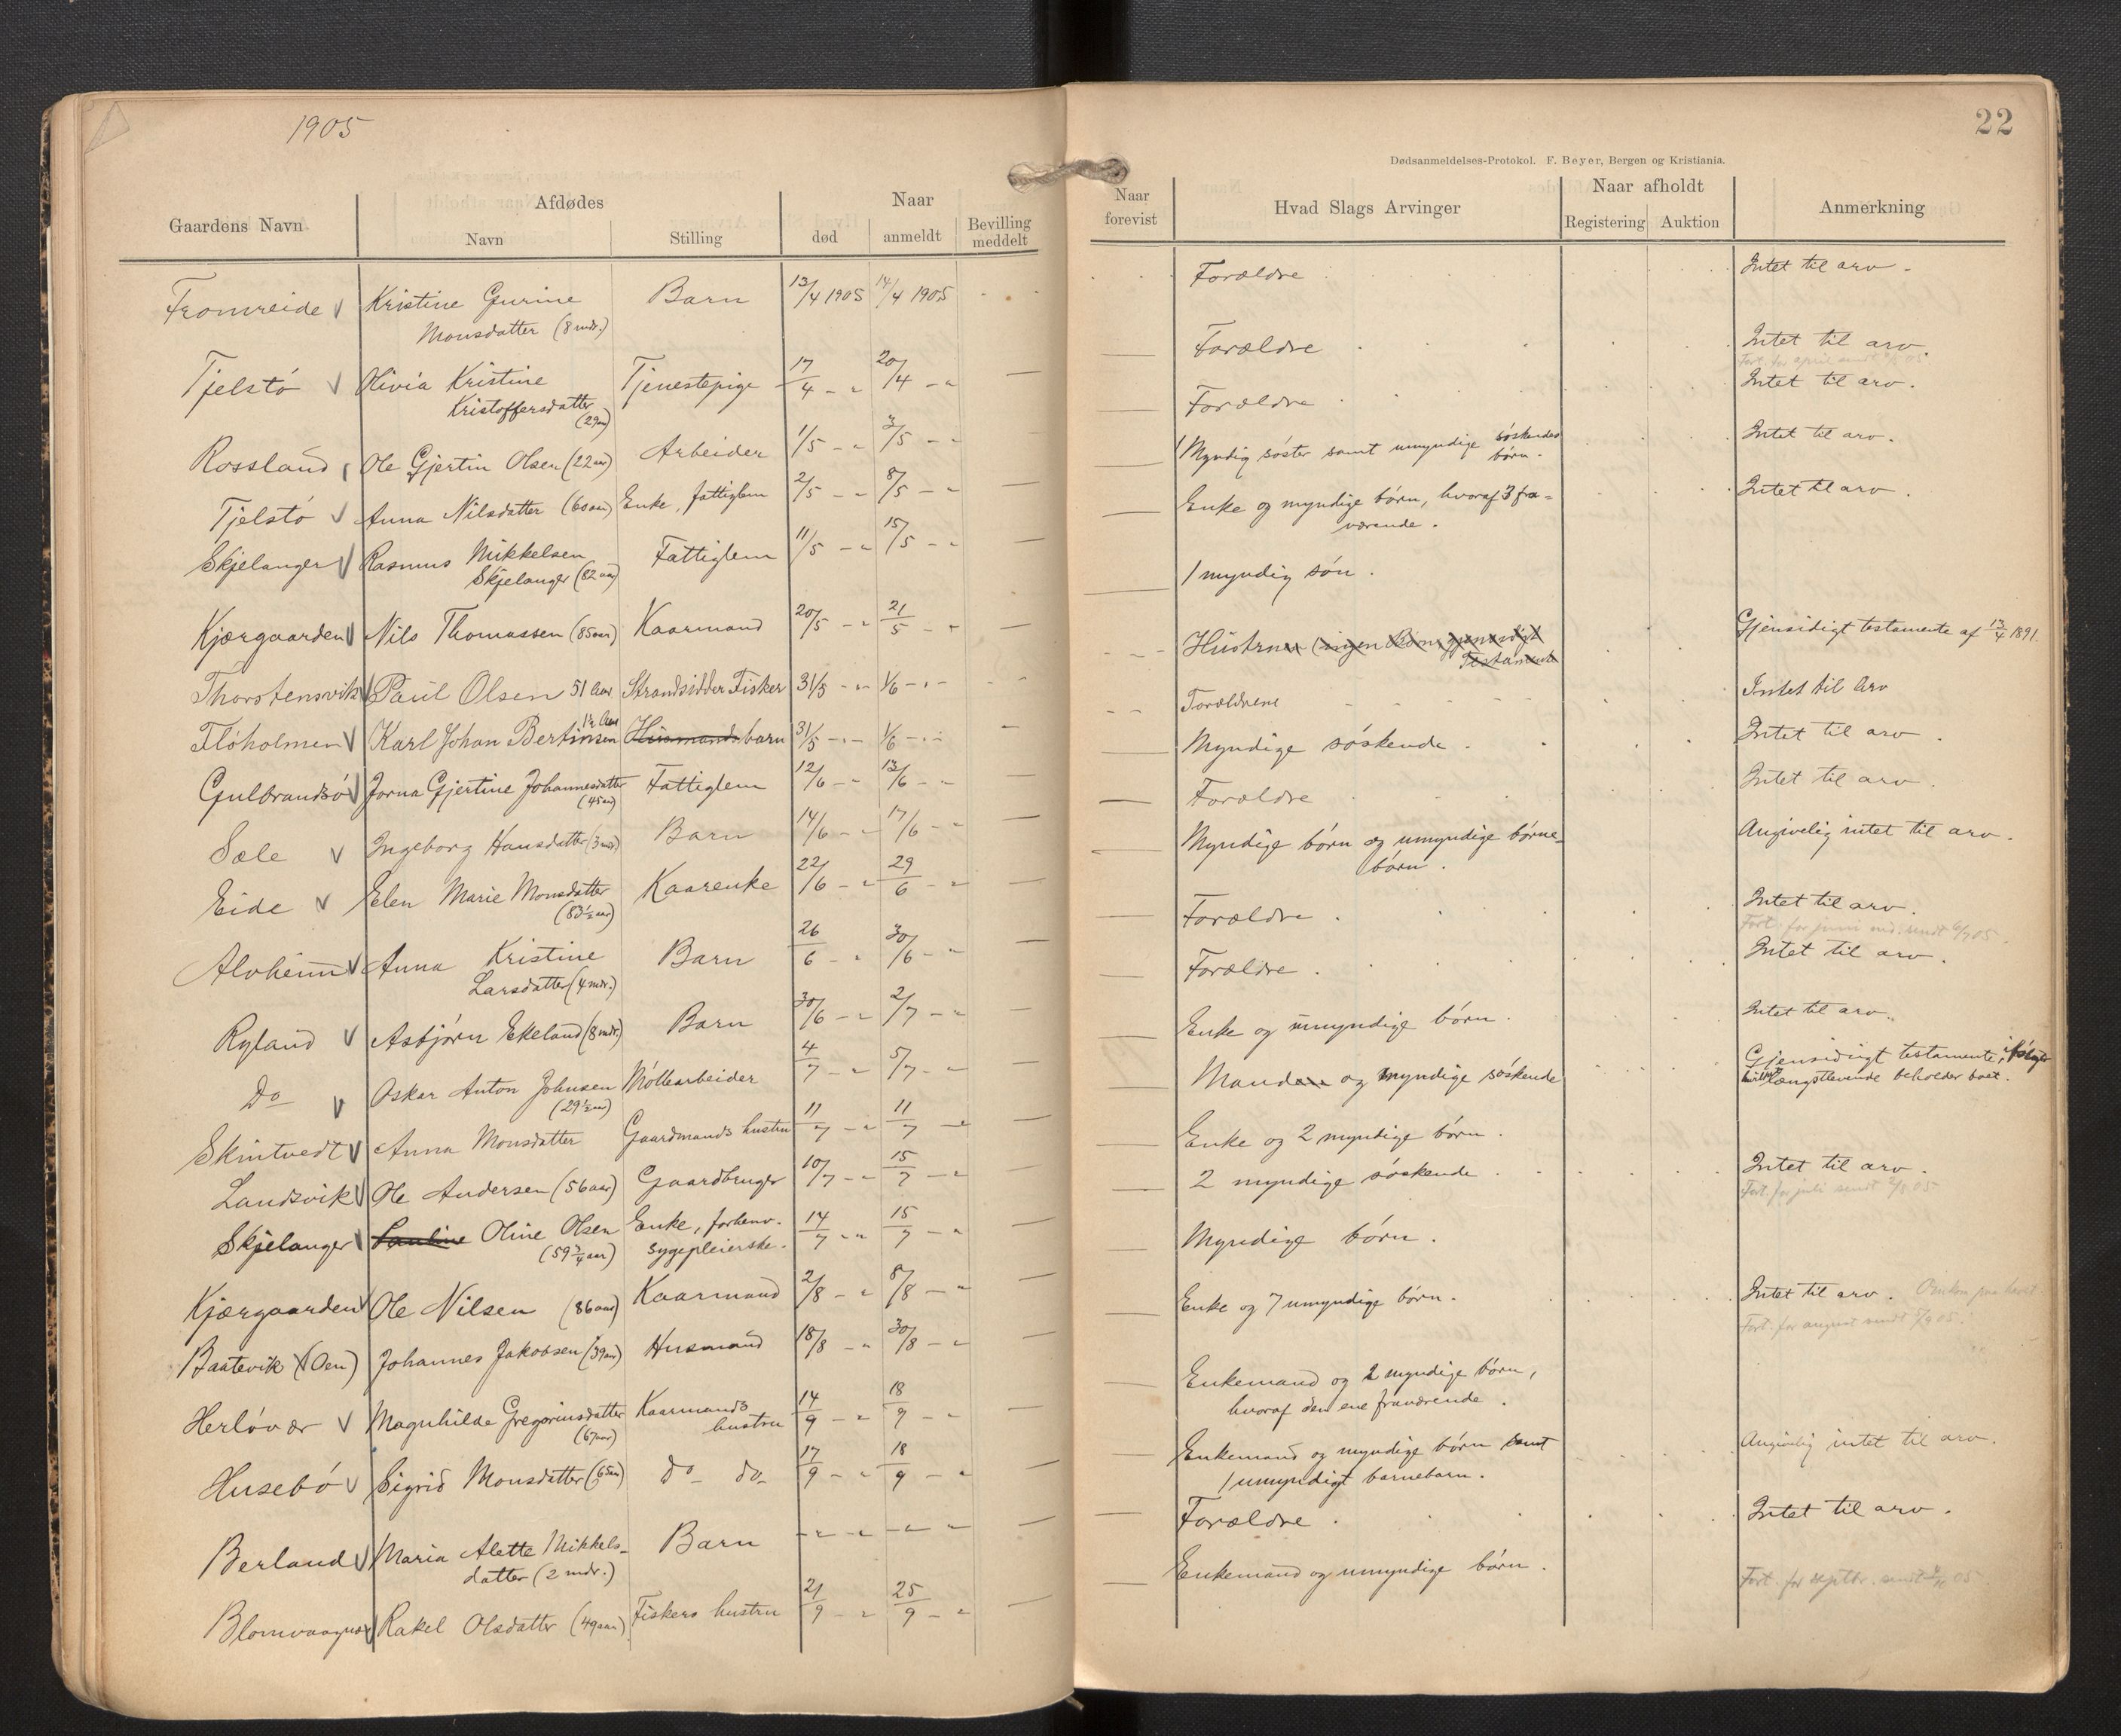 1905
22
Dødsanmeldelses-Protokol. F. Beyer, Bergen og Kristiania.
Gaardens Navn
Afdødes
Navn
Stilling
Naar
død
anmeldt
Bevilling meddelt
Naar forevist
Hvad Slags Arvinger
Naar afholdt
Registering
Auktion
Anmerkning
Fromreide Kristine Gurine Barn 13/4 1905 14/4 1905 Forældre Intet til arv.
Monsdatter (8 mdr.)
Tjelstó Olivia Kristine Tjenestepige 17/4 - " 20/4 - " Forældre Intet til arv.
Kristoffersdatter
(29 aar)
Fort. for april sendt 05
Rossland Ole Gjertin Olsen (22 aar) Arbeider 1/5 - " 3/5 - " Forældre Intet til arv.
Tjelstó Anna Nilsdatter (60 aar) Enke, fattiglem 2/5 - " 8/5 - " 1 Myndig sóster samt umyndige sóskendes Intet til arv.
børn.
Skjelanger Rasmus Mikkelsen Fattiglem 11/5 - " 15/5 - " Enke og myndige børn, hvoraf 3 fra- Intet til arv.
Skjelanger (82 aar) værende.
Kjærgaarden Nils Thomassen (85 aar) Kaarmand 20/5 - " 21/5 - " 1 myndig són.
Thorstensvik Paul Olsen 51 Aar Strandsidder Fisker 31/5 - " - 1/6 - " - Hustruen (ingen Børn, gjensidigt Gjensidigt testamente af 13/4 1891.
Testamente
Flóholmen Karl Johan Bertinsen Husmands barn 31/5 - " - 1/6 - " - Forældrene Intet til Arv
1½ Aar
Gulbrandsó Jorna Gjertine Johannesdatter Fattiglem 12/6 - " 13/6 - " Myndige sóskende. Intet til arv.
(45 aar)
Sæle Ingeborg Hansdatter (3 mdr) Barn 14/6 - " 17/6 - " Forældre Intet til arv.
Eide Elen Marie Monsdatter Kaarenke 22/6 - " 29/6 - " Myndige børn og umyndige børne- Angivelig intet til arv.
(83½ aar) børn.
Alvheim Anna Kristine Barn 26/6 - " 30/6 - " Forældre. Intet til arv.
Larsdatter (4 mdr.) Fort. for juni md. sendt 6/7 05.
Ryland Asbjórn Ekeland (8 mdr.) Barn 30/6 - " 2/7 - " Forældre. Intet til arv.
Do Oskar Anton Johnsen Móllearbeider 4/7 - " 5/7 - " Enke og umyndige børn. Intet til arv.
(29½ aar)
Skintvedt Anna Monsdatter Gaardmands hustru 11/7 - " 11/7 - " Manden og myndige sóskende Gjensidigt testamente, ifólge
hvilket længstlevende beholder boet.
Landsvik Ole Andersen (56 aar) Gaardbruger 10/7 - " 15/7 - " Enke og 2 myndige børn.
Skjelanger Pauline Oline Olsen Enke, forhenv. 14/7 - " 15/7 - " 2 myndige sóskende Intet til arv.
(59¾ aar) sygepleierske. Fort. for juli sendt 2/8 05
Kjærgaarden Ole Nilsen (86 aar) Kaarmand 2/8 - " 8/8 - " Myndige børn.
Baatevik (Oen) Johannes Jakobsen (39 aar) Husmand 18/8 - " 30/8 - " Enke og 7 umyndige børn. Intet til arv.
Fort. for august sendt 5/9 05.
Herlóvær Magnhilde Gregoriusdatter Kaarmands 14/9 - " 18/9 - " Enkemand og 2 myndige børn,
(67 aar) hustru hvoraf den ene fraværende.
Husebó Sigrid Monsdatter (65 aar) do do 17/9 - " 18/9 - " Enkemand og myndige børn samt Angivelig intet til arv.
1 umyndigt barnebarn.
Berland Maria Alette Mikkels- Barn - " - " - " - " Forældre. Intet til arv.
datter (2 mdr.)
Blomvaagnæs Rakel Olsdatter (49 aar) Fiskers hustru 21/9 - " 25/9 - " Enkemand og umyndige børn.
Fort. for septbr. sendt 05